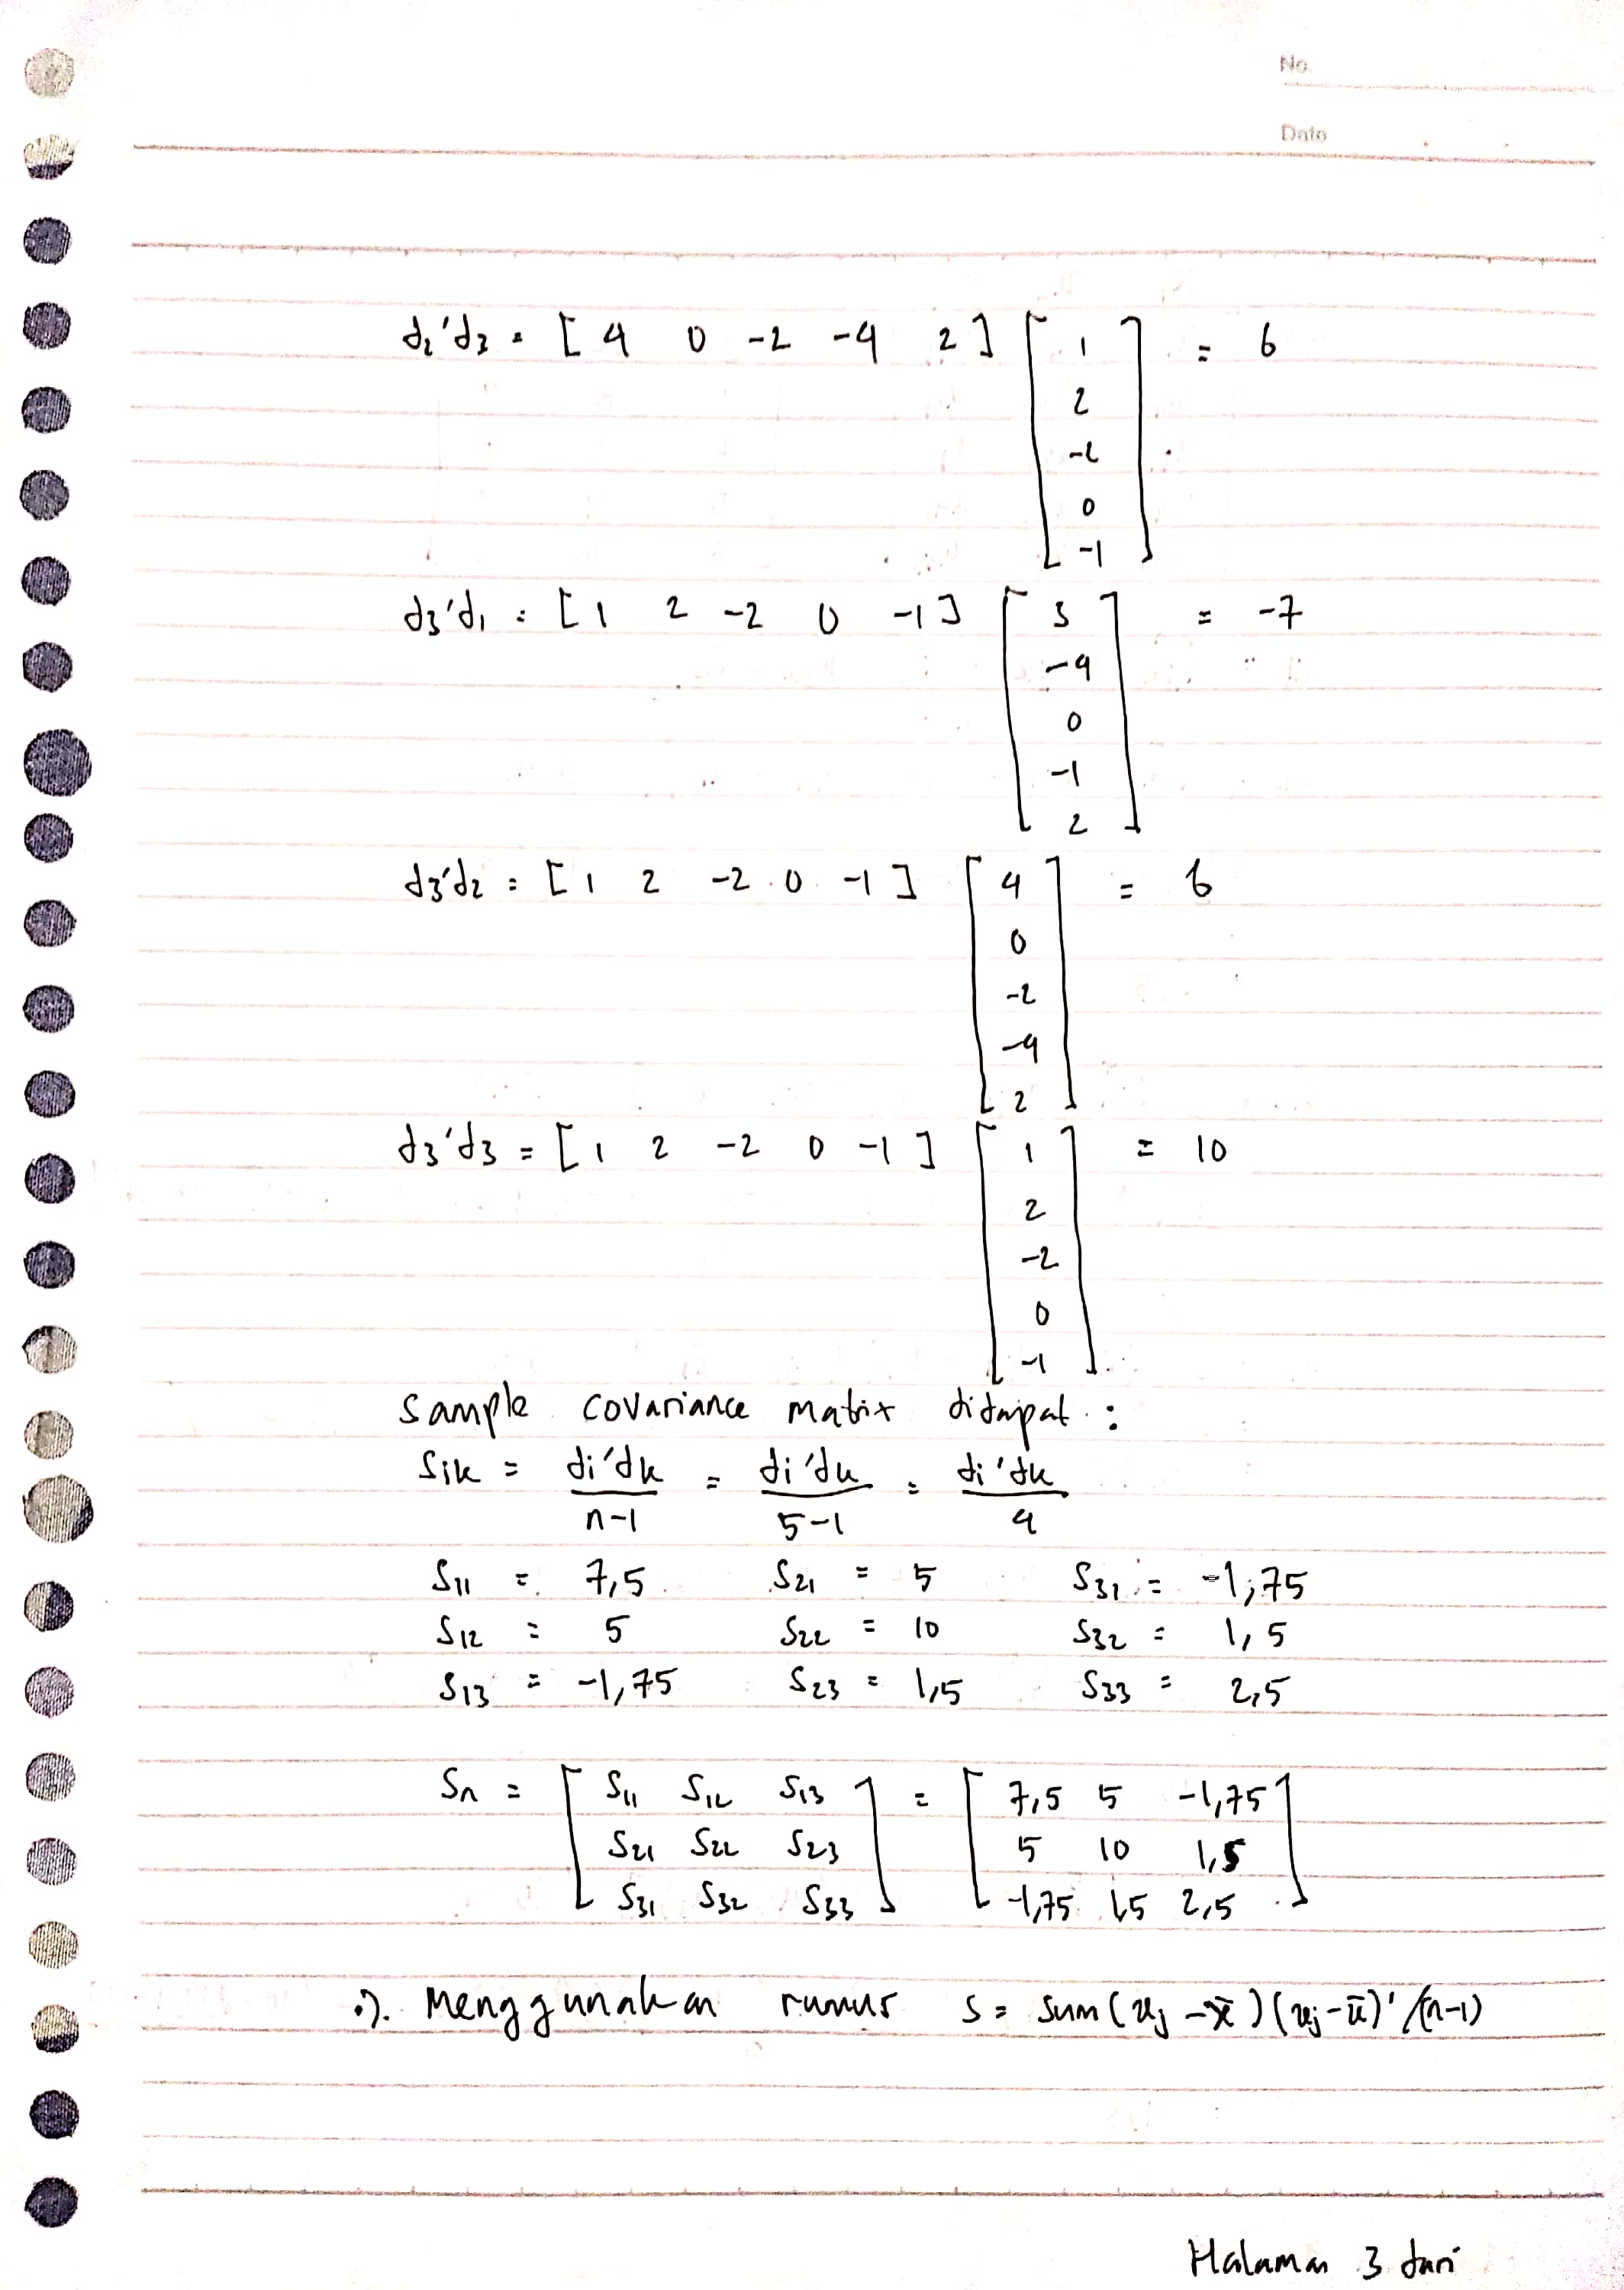 No.
Date
d₂'d₃ = [ 4 0 -2 -4 2 ] [ 1 ] = 6
2
-2
0
-1
d₃'d₁ = [ 1 2 -2 0 -1 ] [ 3 ] = -7
-4
0
-1
2
d₃'d₂ = [ 1 2 -2 0 -1 ] [ 4 ] = 6
0
-2
-4
2
d₃'d₃ = [ 1 2 -2 0 -1 ] [ 1 ] = 10
2
-2
0
-1
Sample covariance matrix didapat :
Sik = di'dk = di'dk = di'dk
n-1 5-1 4
S₁₁ = 7,5 S₂₁ = 5 S₃₁ = -1,75
S₁₂ = 5 S₂₂ = 10 S₃₂ = 1,5
S₁₃ = -1,75 S₂₃ = 1,5 S₃₃ = 2,5
Sn = [ S₁₁ S₁₂ S₁₃ ] = [ 7,5 5 -1,75 ]
S₂₁ S₂₂ S₂₃ 5 10 1,5
S₃₁ S₃₂ S₃₃ -1,75 1,5 2,5
•). Menggunakan rumus S = sum(xj - x̄)(xj - x̄)'/(n-1)
Halaman 3 dari